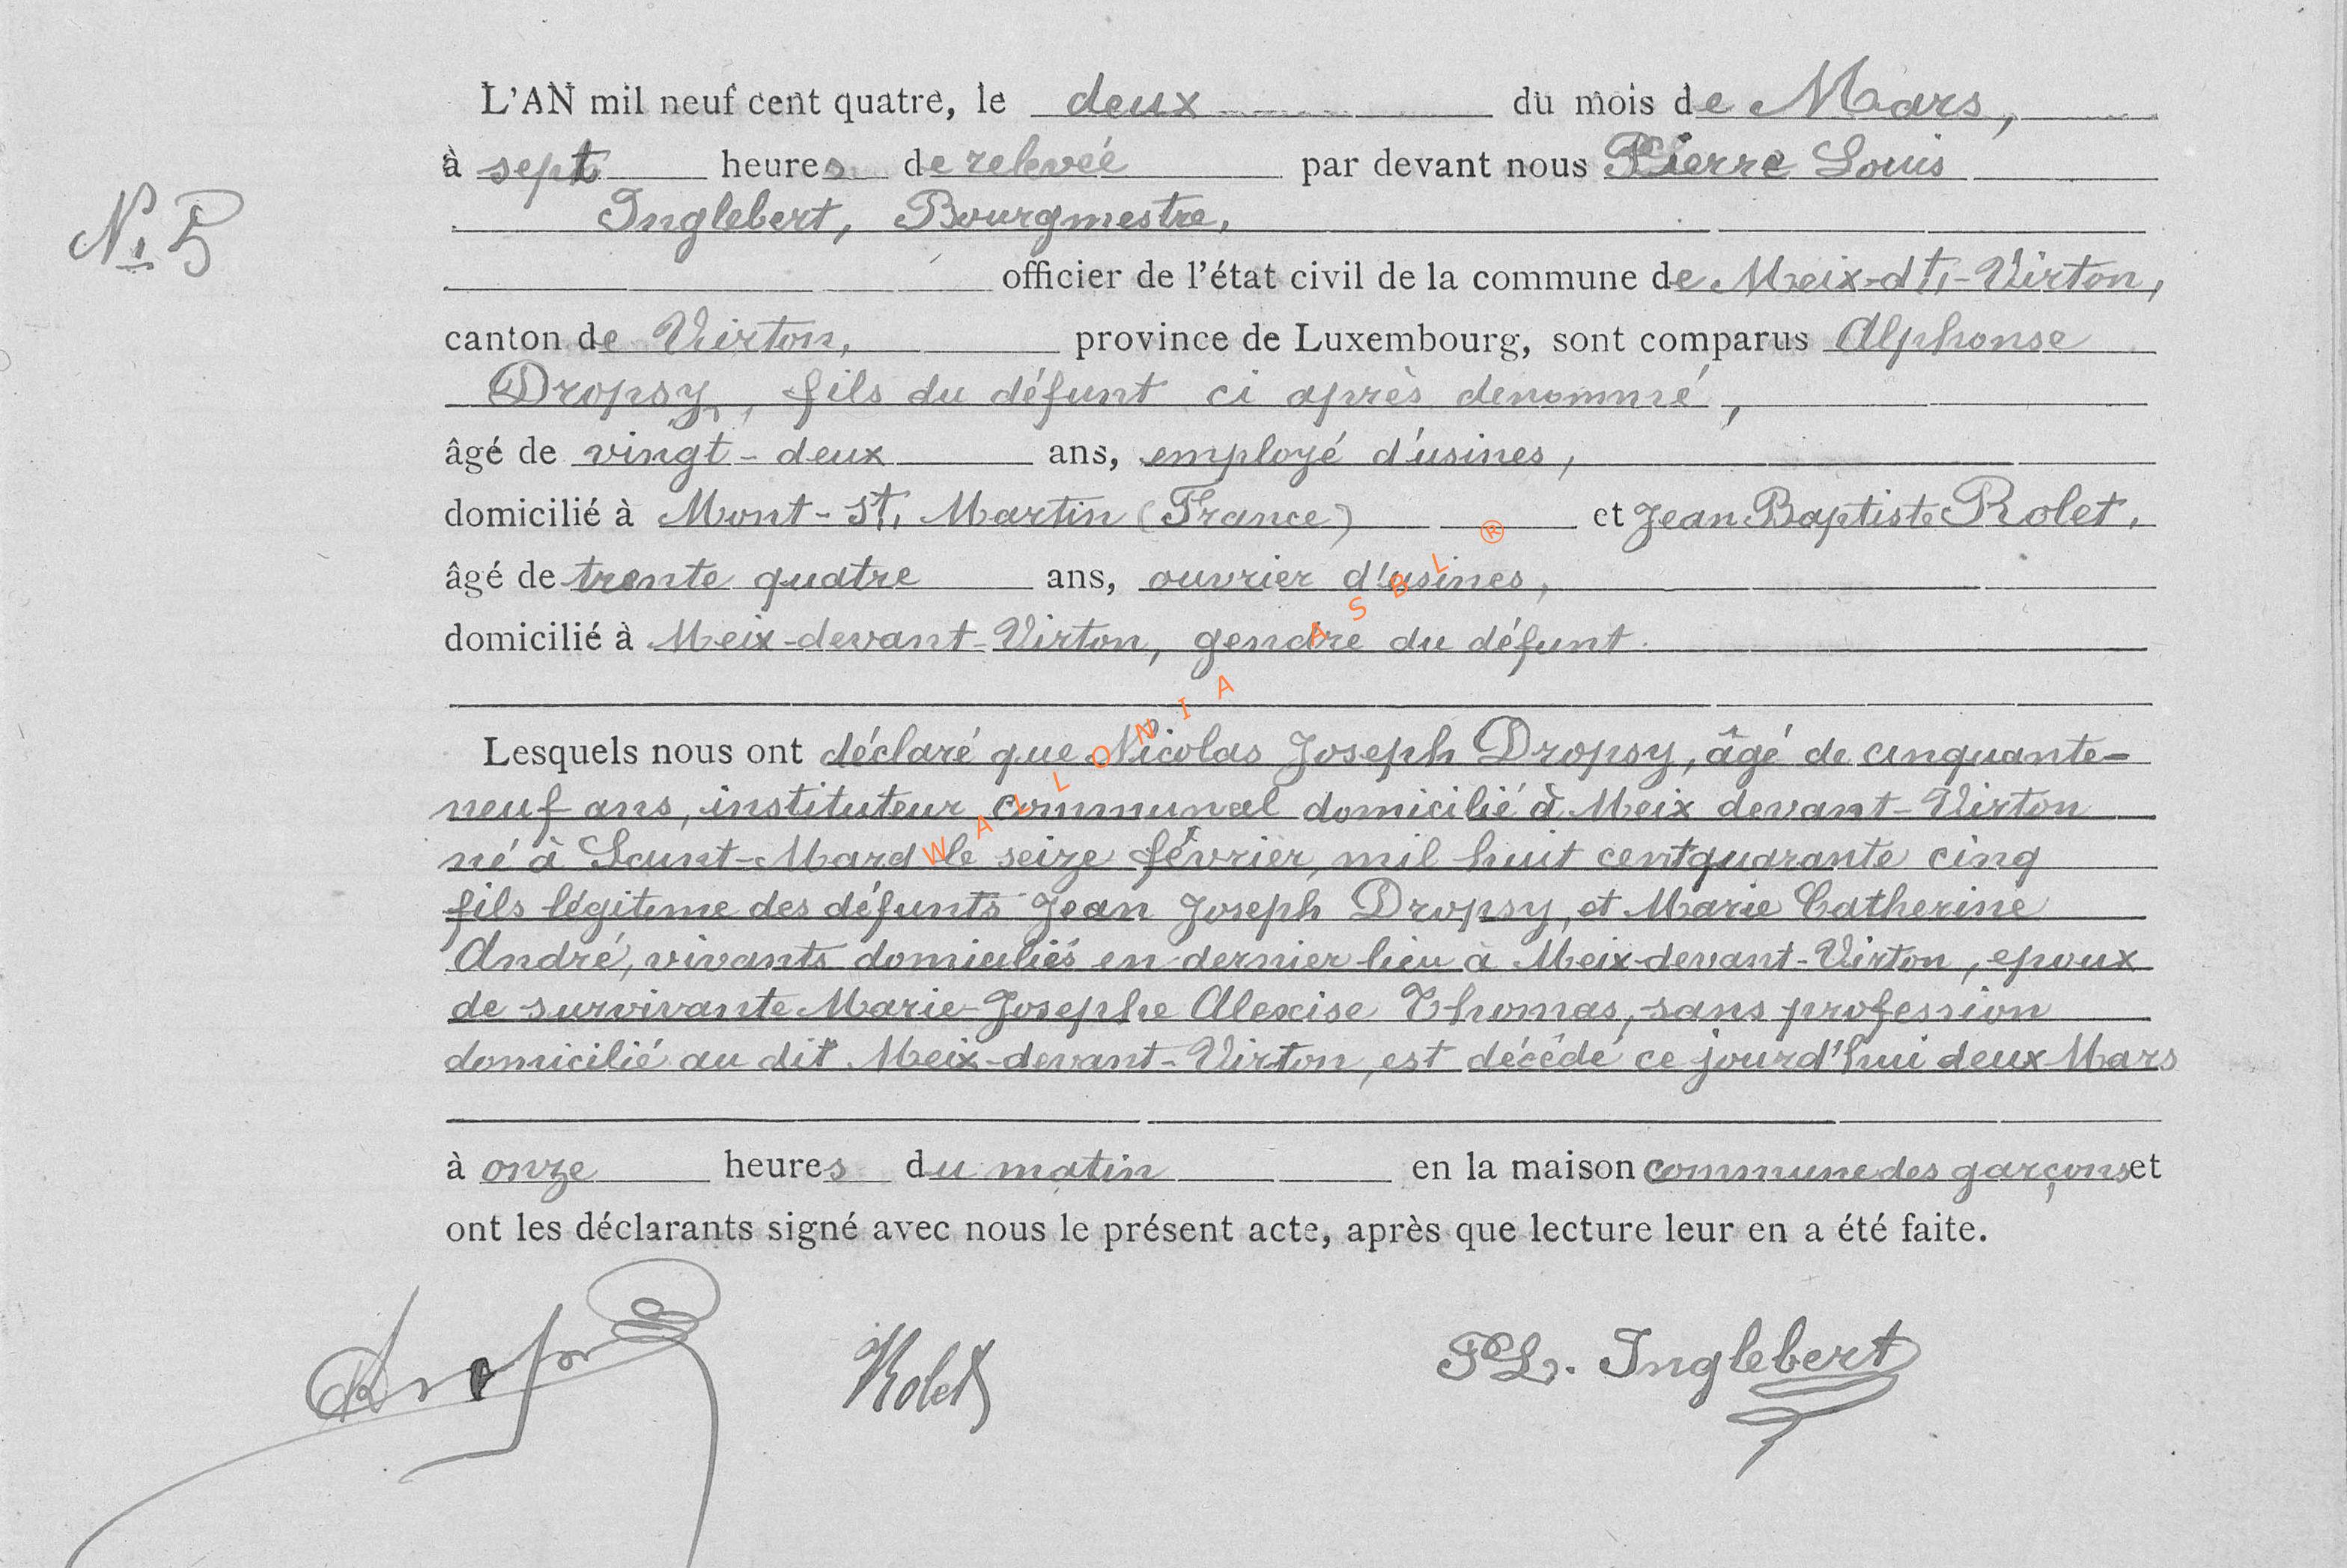 L'AN mil neuf cent quatre, le deux du mois de Mars,
à sept heures de relevée par devant nous Pierre Louis
N° 5
Inglebert, Bourgmestre,
officier de l'état civil de la commune de Meix-dt-Virton,
canton de Virton, province de Luxembourg, sont comparus Alphonse
Dropsy, fils du défunt ci après denommé,
âgé de vingt-deux ans, employé d'usines,
domicilié à Mont-St. Martin (France) et Jean Baptiste Rolet,
âgé de trente quatre ans, ouvrier d'usines,
domicilié à Meix-devant-Virton, gendre du défunt.
Lesquels nous ont déclaré que Nicolas Joseph Dropsy, âgé de cinquante-
neuf ans, instituteur communal domicilié à Meix devant-Virton
né à Saint-Mard le seize février, mil huit cent quarante cinq
fils légitime des défunts Jean Joseph Dropsy, et Marie Catherine
André, vivants domiciliés en dernier lieu à Meix-devant-Virton, epoux
de survivante Marie-Josephe Alexise Thomas, sans profession
domicilié au dit Meix-devant-Virton, est décédé ce jourd'hui deux Mars
à onze heures du matin en la maison commune des garçons et
ont les déclarants signé avec nous le présent acte, après que lecture leur en a été faite.
Dropsy Rolet PL. Inglebert
WALLONIA ASBL ®